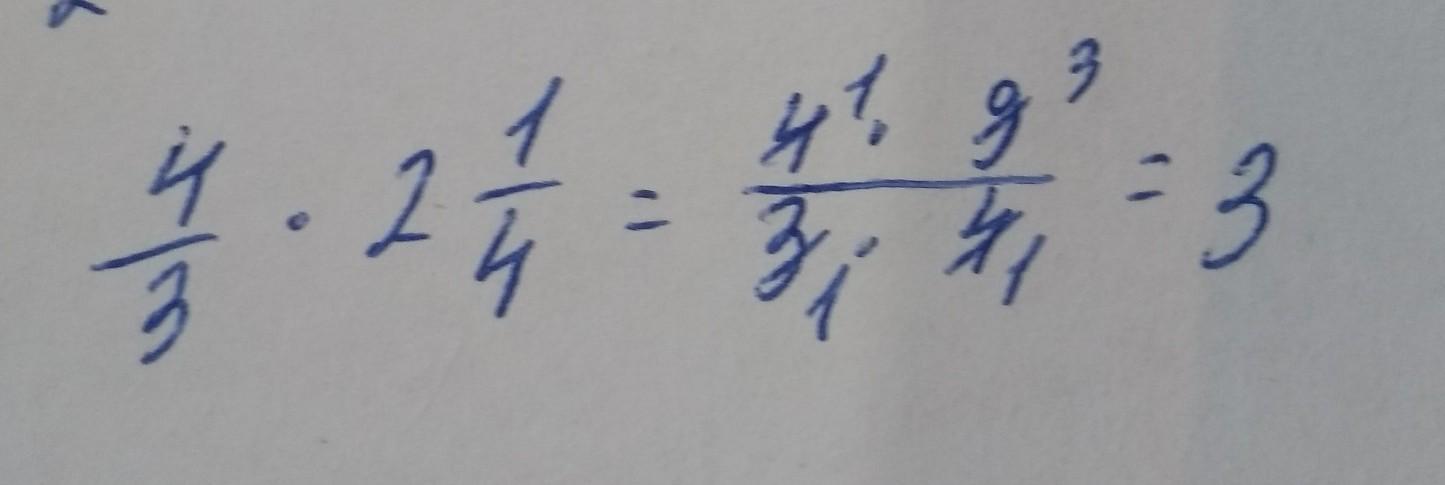 4/3 · 2 1/4 = 4¹ · 9³ / 3₁ · 4₁ = 3